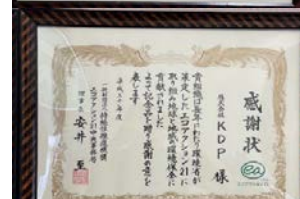 感謝状
株式会社 KDP 様
貴組織は長年にわたり環境省が
策定したエコアクション21に
取り組み地球と地域の環境保全に
貢献されました
よって記念品を贈り感謝の意を
表します
平成三十年度
一般財団法人 持続性推進機構
エコアクション21中央事務局
理事長 安井 至